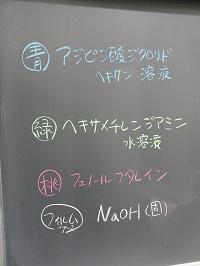 青 アジピン酸ジクロリド
ヘキサン溶液
緑 ヘキサメチレンジアミン
水溶液
桃 フェノールフタレイン
フィルムケース NaOH(固)